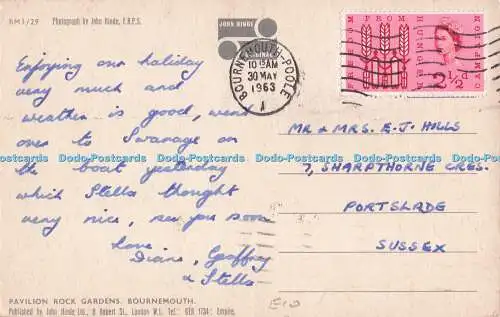 BM1/29 Photograph by John Hinde, F.R.P.S.
JOHN HINDE
ORIGINAL
BOURNEMOUTH-POOLE
10 15AM
30 MAY
1963
A
FREEDOM FROM HUNGER CAMPAIGN
2½d
Enjoying our holiday
very much and
weather is good, went
over to Swanage on
the boat yesterday
which Stella thought
very nice, see you soon
Love
Diane, Geoffrey
& Stella
MR & MRS. E.J. HILLS
7, SHARPTHORNE CRES.
PORTSLADE
SUSSEX
PAVILION ROCK GARDENS, BOURNEMOUTH.
Published by John Hinde Ltd., 8 Robert St., London W.1. Tel.: EUS 1784: Empire.
Dodo-Postcards Dodo-Postcards Dodo-Postcards Dodo-Postcards Dodo-Postcards